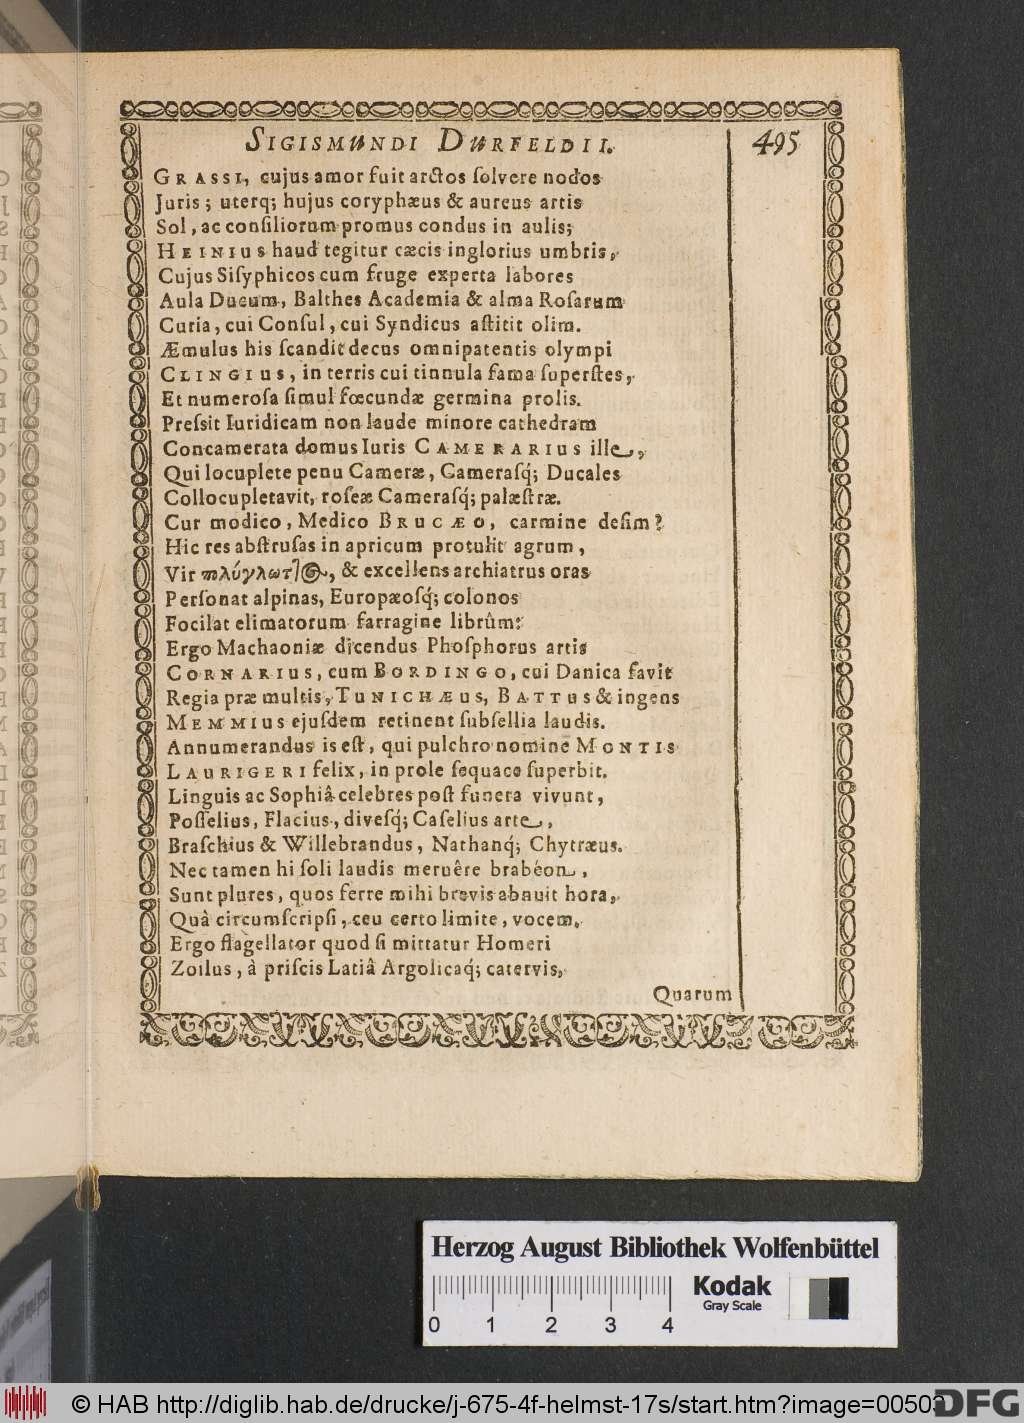 SIGISMUNDI DURFELDII. 495
GRASSI, cujus amor fuit arctos ſolvere nodos
Juris; uterq; hujus coryphæus & aureus artis
Sol, ac conſiliorum promus condus in aulis;
HEINIUS haud tegitur cæcis inglorius umbris,
Cujus Siſyphicos cum fruge experta labores
Aula Ducum, Balthes Academia & alma Roſarum
Curia, cui Conſul, cui Syndicus aſtitit olim.
Æmulus his ſcandit decus omnipatentis olympi
CLINGIUS, in terris cui tinnula fama ſuperſtes,
Et numeroſa ſimul fœcundæ germina prolis.
Preſsit Iuridicam non laude minore cathedram
Concamerata domus Iuris CAMERARIUS ille,
Qui locuplete penu Cameræ, Cameraſq́; Ducales
Collocupletavit, roſeæ Cameraſq́; palæſtræ.
Cur modico, Medico BRUCÆO, carmine deſim?
Hic res abſtruſas in apricum protulit agrum,
Vir πλύγλωτ]⊙, & excellens archiatrus oras
Perſonat alpinas, Europæoſq́; colonos
Focilat elimatorum farragine librûm:
Ergo Machaoniæ dicendus Phoſphorus artis
CORNARIUS, cum BORDINGO, cui Danica favit
Regia præ multis, TUNICHÆUS, BATTUS & ingens
MEMMIUS ejuſdem retinent ſubſellia laudis.
Annumerandus is eſt, qui pulchro nomine MONTIS
LAURIGERI felix, in prole ſequace ſuperbit.
Linguis ac Sophiâ celebres poſt funera vivunt,
Poſſelius, Flacius, diveſq́; Caſelius arte,
Braſchius & Willebrandus, Nathanq́; Chytræus.
Nec tamen hi ſoli laudis meruêre brabéon,
Sunt plures, quos ferre mihi brevis abnuit hora,
Quâ circumſcripſi, ceu certo limite, vocem.
Ergo flagellator quod ſi mittatur Homeri
Zoilus, à priſcis Latiâ Argolicaq́; catervis,
Quarum
Herzog August Bibliothek Wolfenbüttel
Kodak
Gray Scale
0 1 2 3 4
© HAB http://diglib.hab.de/drucke/j-675-4f-helmst-17s/start.htm?image=00503
DFG